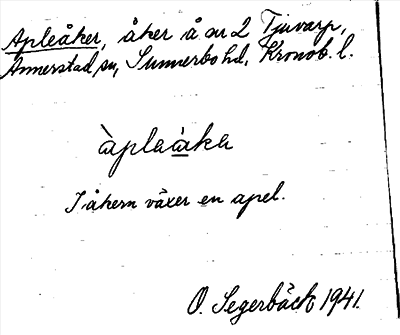 Apleåker, åker å nr 2 Tjuvarp,
Annerstad sn, Sunnerbo hd, Kronob. l.
àplaàka
I åkern växer en apel.
O. Segerbäck 1941.